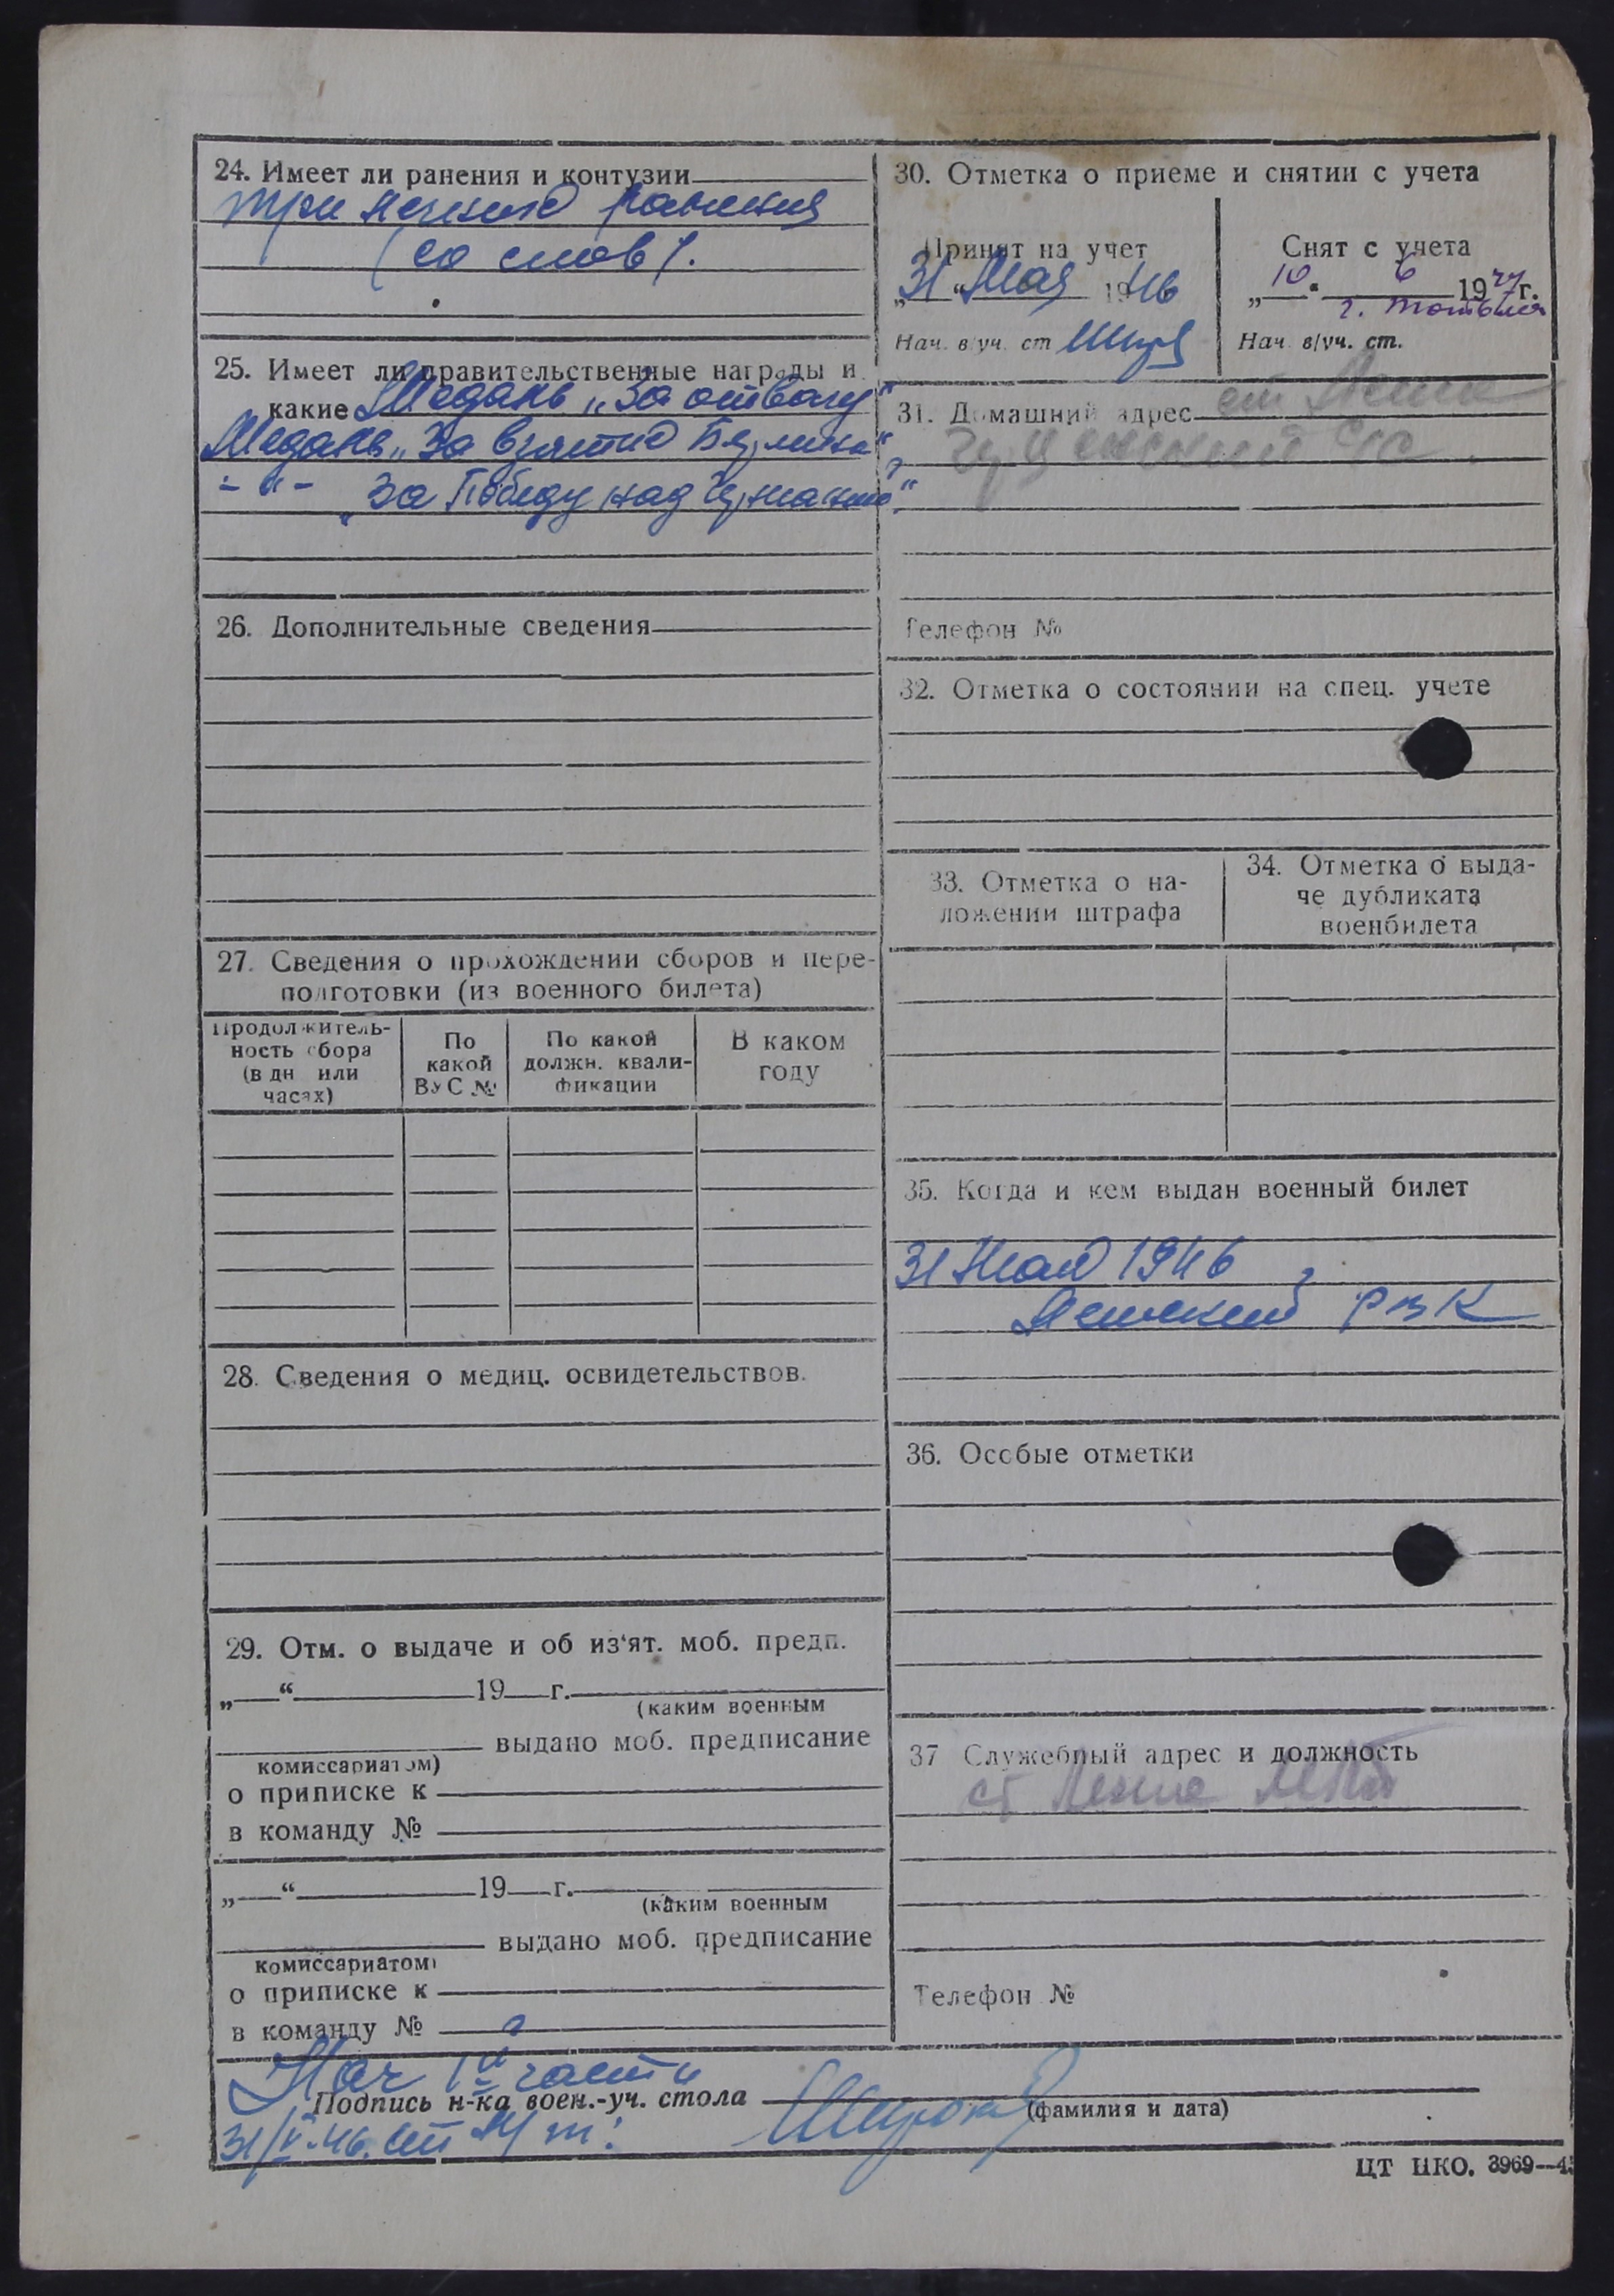 24. Имеет ли ранения и контузии
три легкие ранения
(со слов).
25. Имеет ли правительственные награды и
какие Медаль „За отвагу"
Медаль „За взятие Берлина",
- " - „За Победу над Германией".
26. Дополнительные сведения
27. Сведения о прохождении сборов и пере-
подготовки (из военного билета)
Продолжитель-
ность сбора
(в дн или
часах)
По
какой
ВУС №
По какой
должн. квали-
фикации
В каком
году
28. Сведения о медиц. освидетельствов.
29. Отм. о выдаче и об из'ят. моб. предп.
„ " 19 г.
(каким военным
выдано моб. предписание
комиссариатом)
о приписке к
в команду №
„ " 19 г.
(каким военным
выдано моб. предписание
комиссариатом)
о приписке к
в команду №
30. Отметка о приеме и снятии с учета
Принят на учет
„31" Мая 1946
Нач. в/уч. ст
Снят с учета
„10" 6 1947г.
Нач. в/уч. ст.
31. Домашний адрес ст.
с/с
Телефон №
32. Отметка о состоянии на спец. учете
33. Отметка о на-
ложении штрафа
34. Отметка о выда-
че дубликата
военбилета
35. Когда и кем выдан военный билет
31 Мая 1946
РВК
36. Особые отметки
37 Служебный адрес и должность
ст
Телефон №
Нач 1й части
Подпись н-ка воен.-уч. стола
(фамилия и дата)
31/V-46.
ЦТ НКО. 3969—4